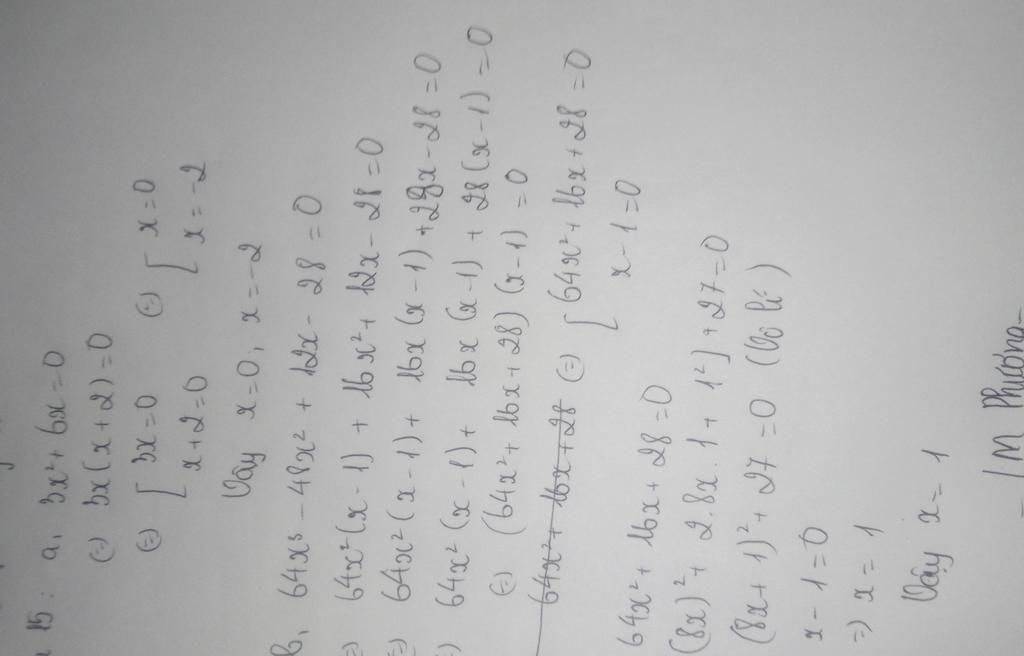 15: a, 3x² + 6x = 0
(=) 3x(x+2) = 0
(=) [ 3x = 0 (=) [ x = 0
x+2 = 0 x = -2
Vậy x = 0, x = -2
b, 64x³ - 48x² + 12x - 28 = 0
=) 64x²(x-1) + 16x² + 12x - 28 = 0
(=) 64x²(x-1) + 16x(x-1) + 28x - 28 = 0
=) 64x²(x-1) + 16x(x-1) + 28(x-1) = 0
(=) (64x² + 16x + 28)(x-1) = 0
64x² + 16x + 28 (=) [ 64x² + 16x + 28 = 0
x - 1 = 0
64x² + 16x + 28 = 0
(8x)² + 2.8x.1 + 1²] + 27 = 0
(8x+1)² + 27 = 0 (Vô lí)
x - 1 = 0
=) x = 1
Vậy x = 1
M Phương